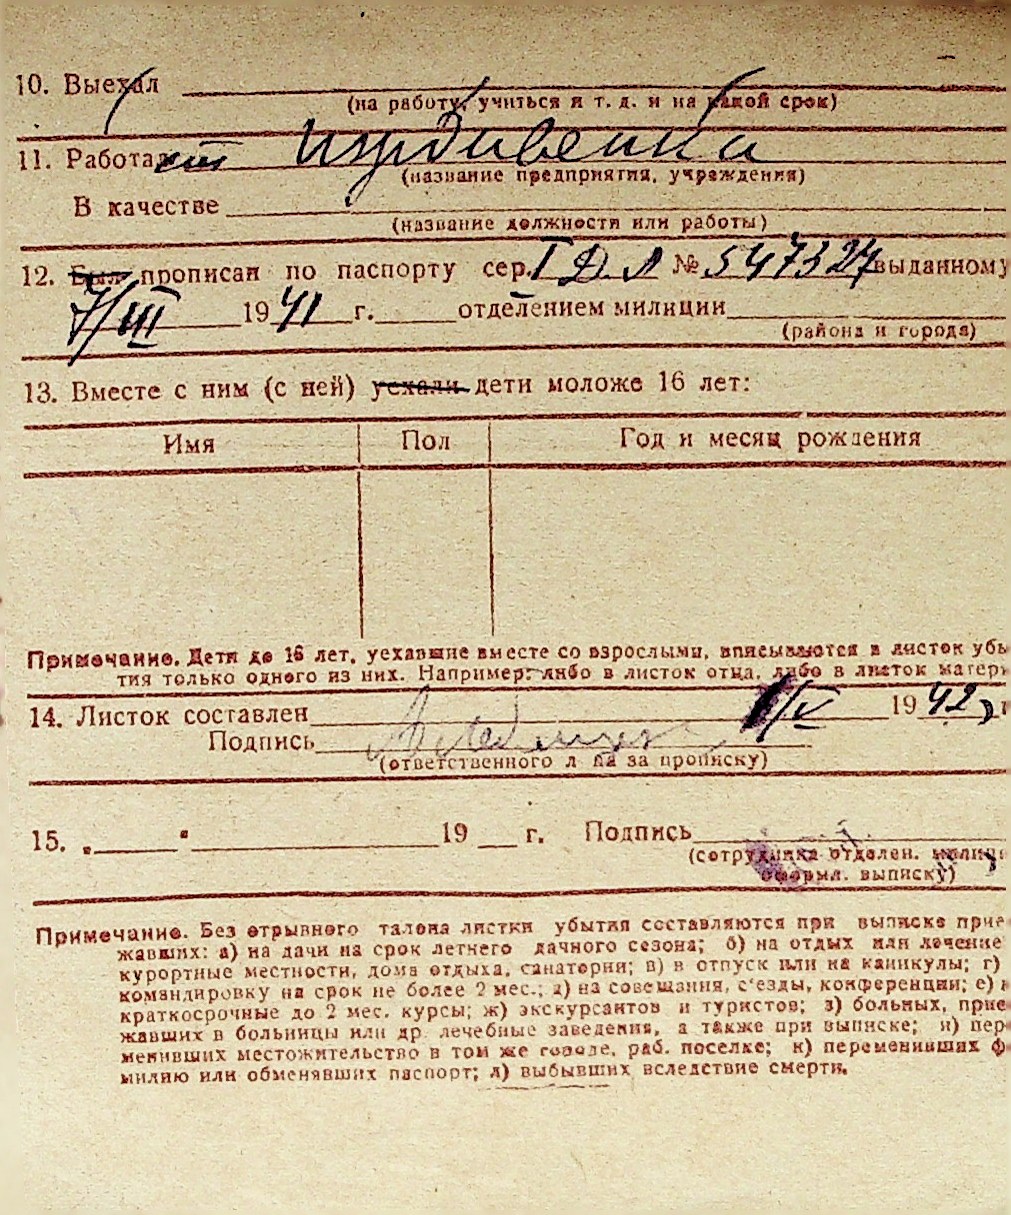 10. Выехал
(на работу, учиться и т. д. и на какой срок)
11. Работает иждивенка
(название предприятия, учреждения)
В качестве
(название должности или работы)
12. Был прописан по паспорту сер. I Д. Л № 547327 выданному
7/III 1941 г. отделением милиции
(района и города)
13. Вместе с ним (с ней) уехали дети моложе 16 лет:
Имя Пол Год и месяц рождения
Примечание. Дети до 16 лет, уехавшие вместе со взрослыми, вписываются в листок убы
тия только одного из них. Например: либо в листок отца, либо в листок матери
14. Листок составлен /IV 1942 г
Подпись
(ответственного л ца за прописку)
15. „ " 19 г. Подпись
(сотрудника отделен. милиц
оформл. выписку)
Примечание. Без отрывного талона листки убытия составляются при выписке прие
жавших: а) на дачи на срок летнего дачного сезона; б) на отдых или лечение
курортные местности, дома отдыха, санатории; в) в отпуск или на каникулы; г)
командировку на срок не более 2 мес.; д) на совещания, с'езды, конференции; е)
краткосрочные до 2 мес. курсы; ж) экскурсантов и туристов; з) больных, прие
жавших в больницы или др. лечебные заведения, а также при выписке; и) пер
менивших местожительство в том же городе, раб. поселке; к) переменивших ф
милию или обменявших паспорт; л) выбывших вследствие смерти.